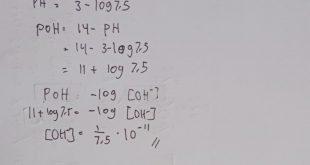 PH = 3 - log 7,5
POH = 14 - PH
= 14 - 3 - log 7,5
= 11 + log 7,5
POH = -log [OH⁻]
11 + log 7,5 = -log [OH⁻]
[OH⁻] = 1/7,5 · 10⁻¹¹ //